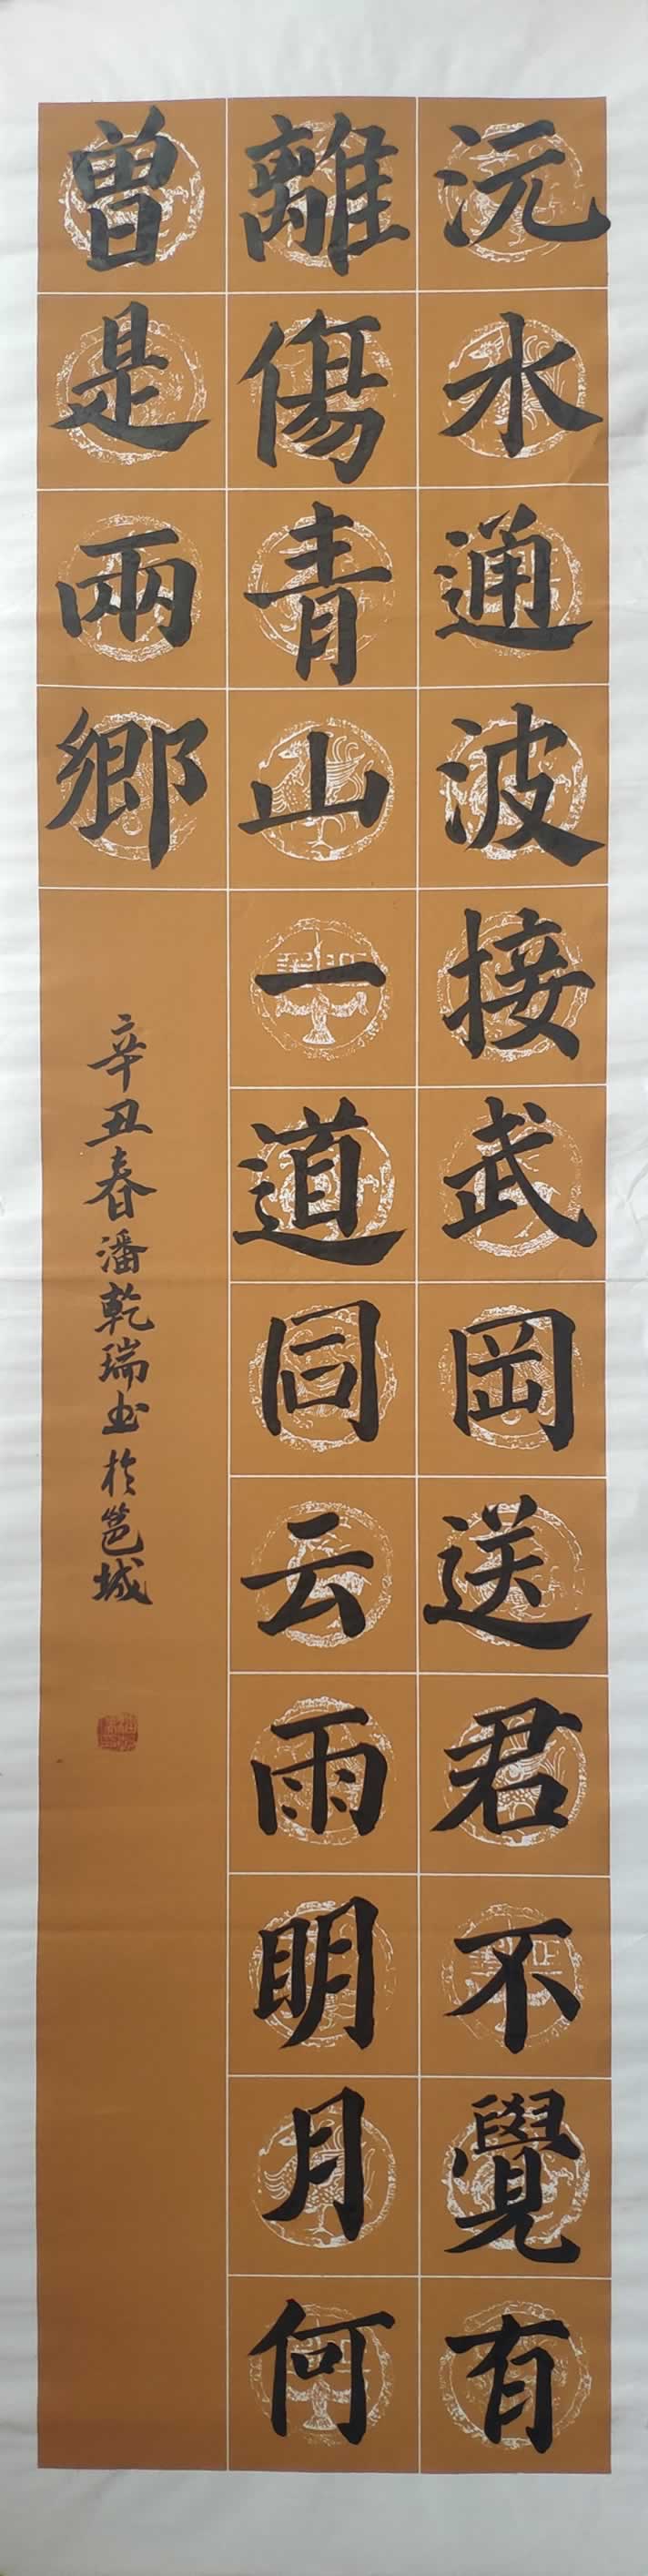 沅水通波接武岡送君不覺有
離傷青山一道同云雨明月何
曽是兩鄉
辛丑春潘乾瑞书於邕城